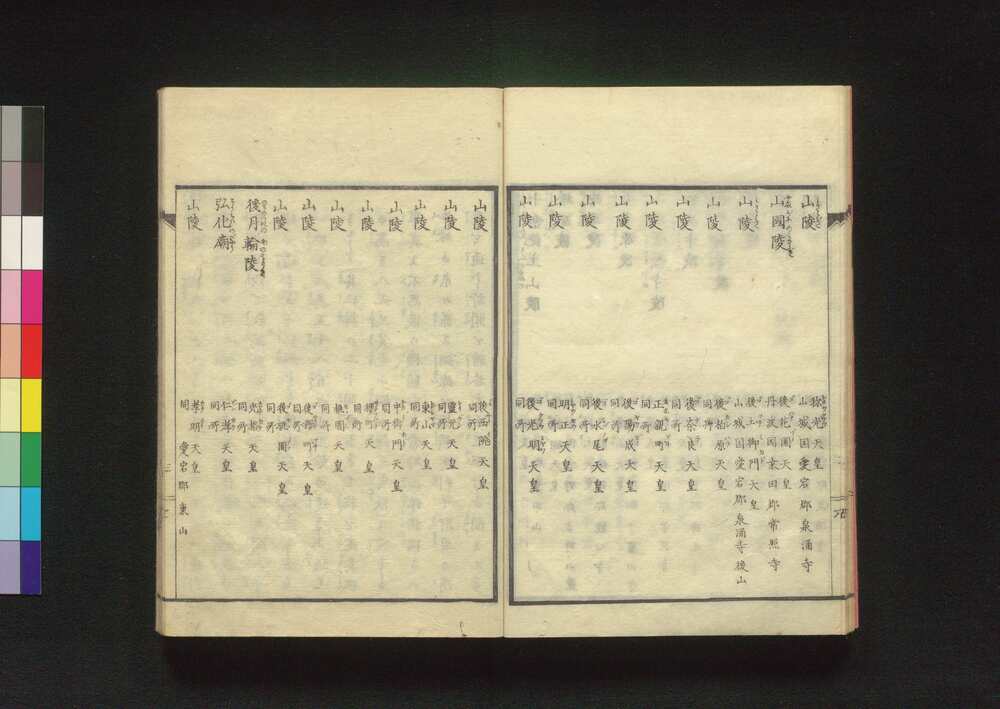 山陵
称光天皇
山城国愛宕郡泉涌寺
山國陵
後花園天皇
丹波国桑田郡常照寺
山陵
後土御門天皇
山城国愛宕郡泉涌寺後山
山陵
後柏原天皇
同所
山陵
後奈良天皇
同所
山陵
正親町天皇
同所
山陵
後陽成天皇
同所
山陵
後水尾天皇
同所
山陵
明正天皇
同所
山陵
後光明天皇
同所
山陵
後西院天皇
同所
山陵
靈元天皇
同所
山陵
東山天皇
同所
山陵
中御門天皇
同所
山陵
櫻町天皇
同所
山陵
桃園天皇
同所
山陵
後櫻町天皇
同所
山陵
後桃園天皇
同所
後月輪陵
光格天皇
同所
弘化廟
仁孝天皇
同所
山陵
孝明天皇
同所 愛宕郡東山
三